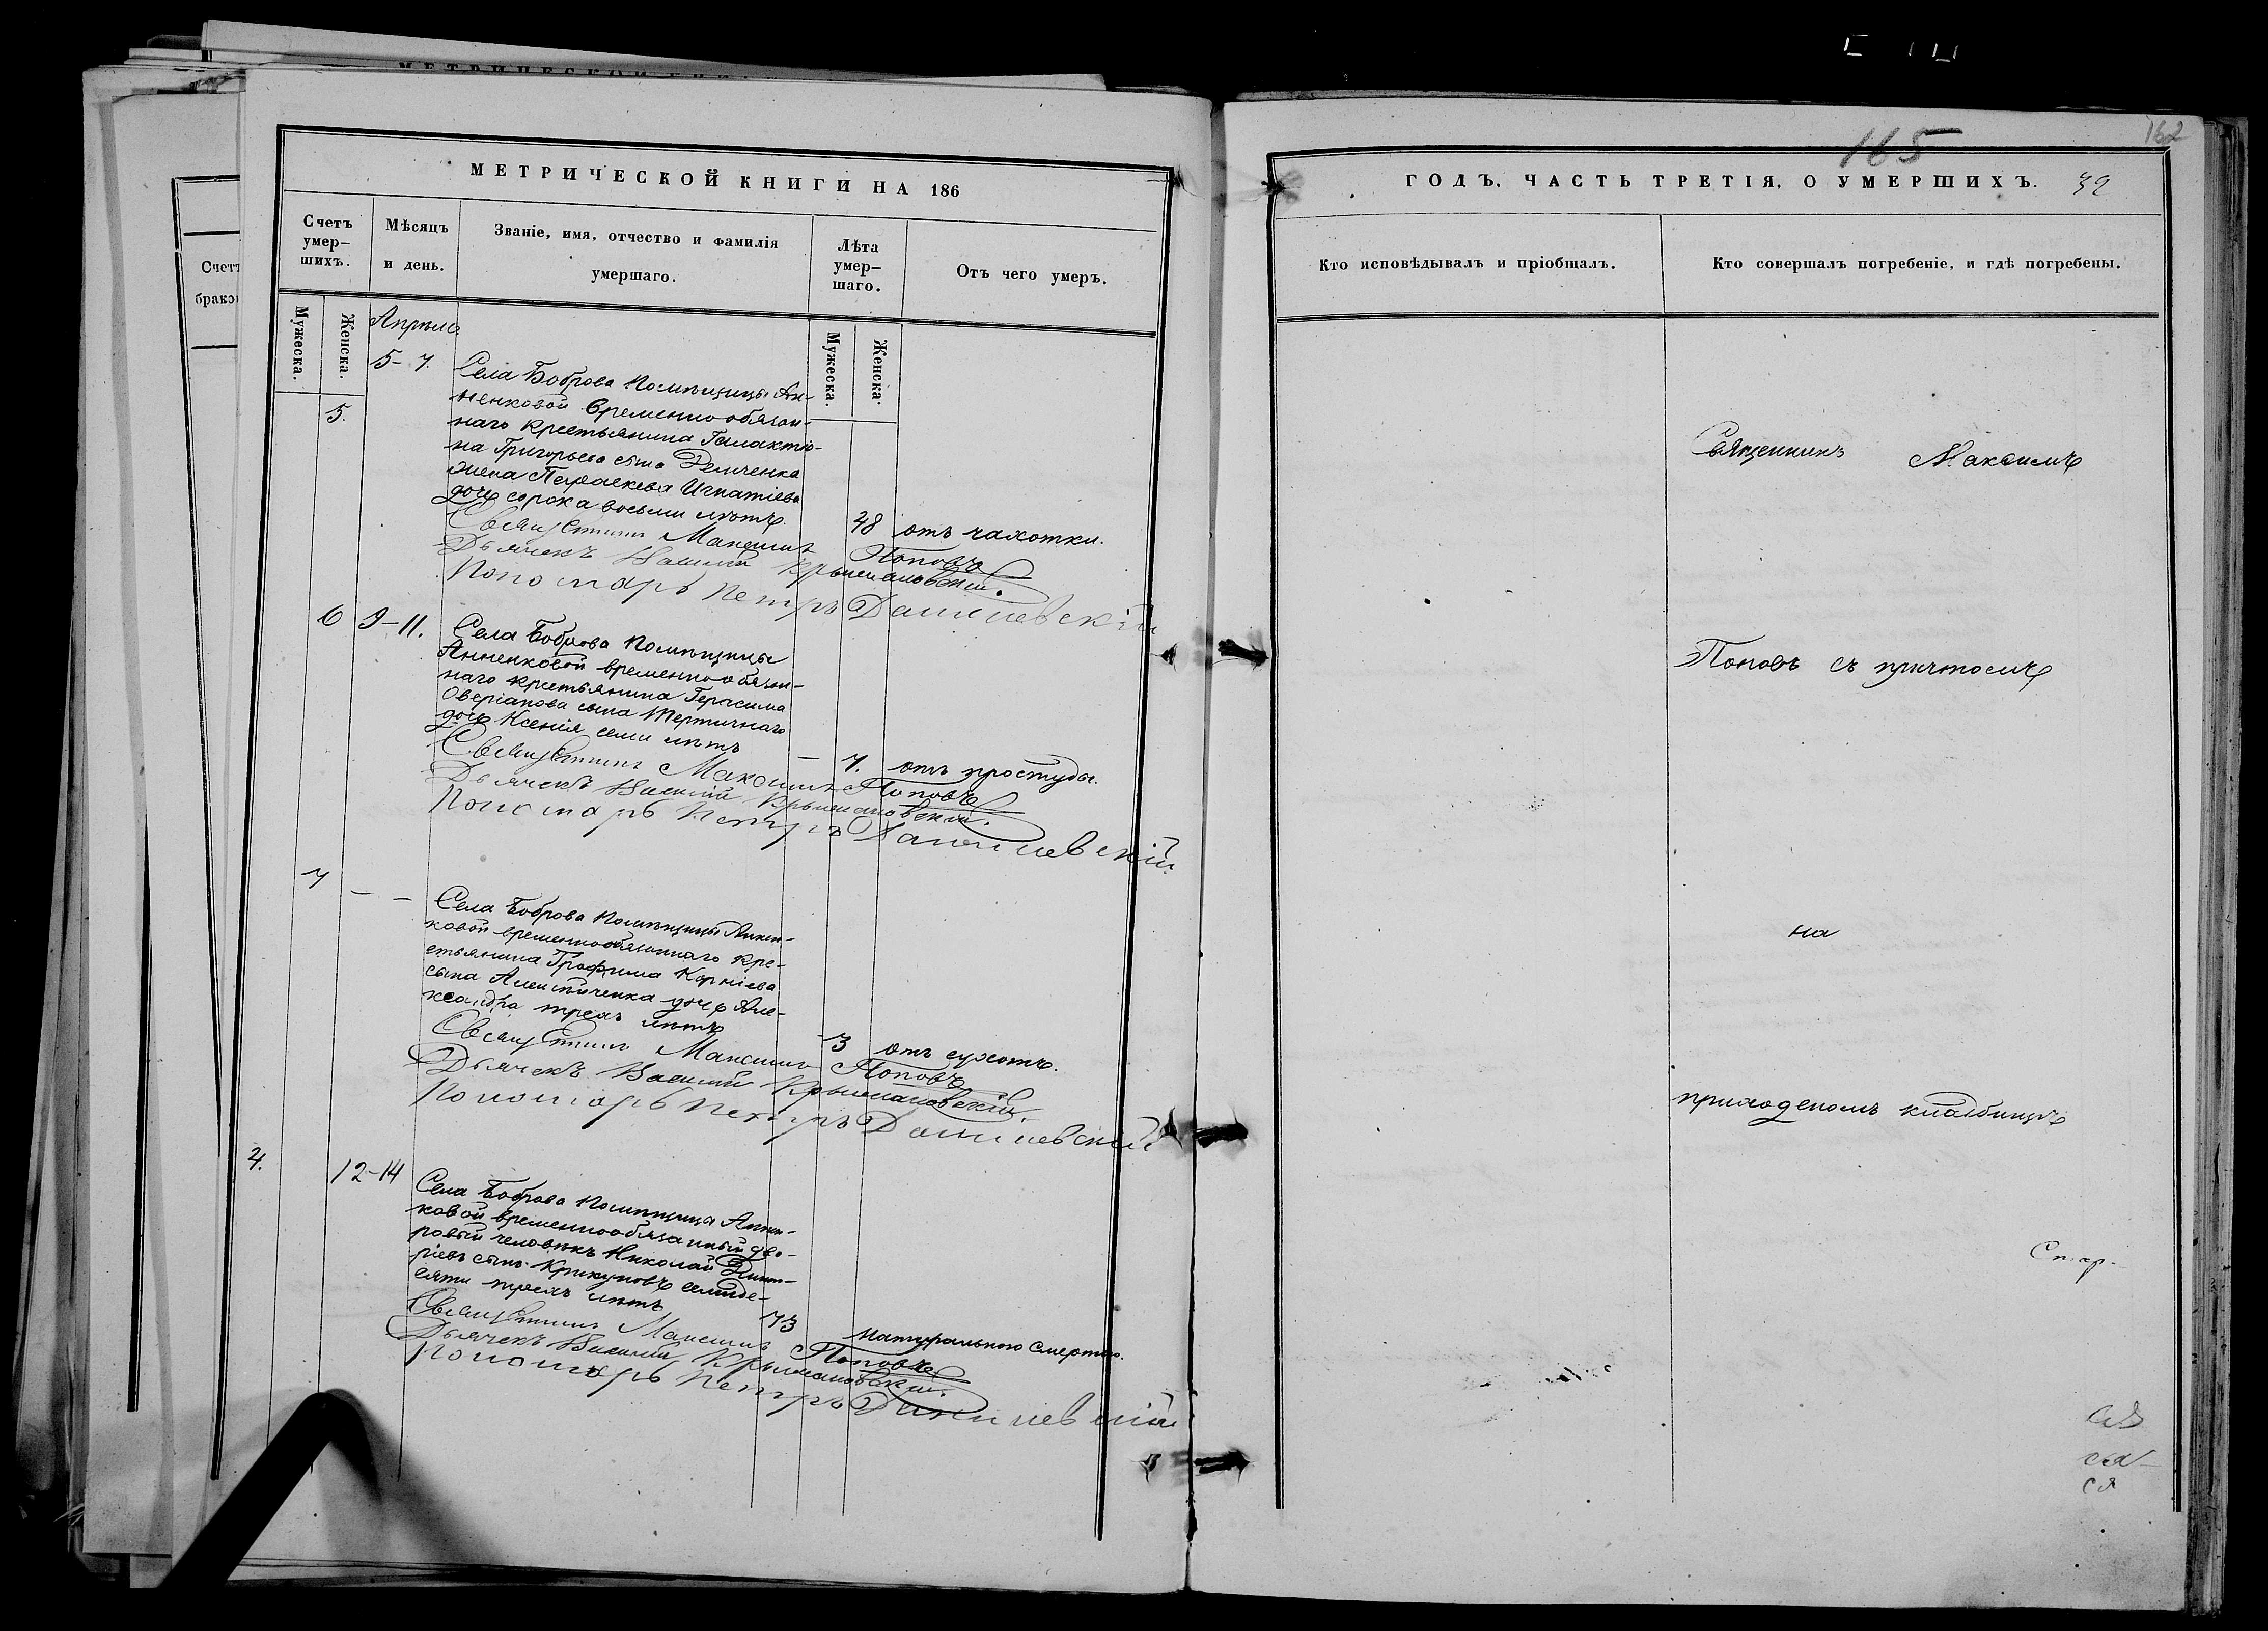 МЕТРИЧЕСКОЙ КНИГИ НА 186
Счетъ умер-шихъ.
Мѣсяцъ и день.
Званіе, имя, отчество и фамилія умершаго.
Лѣта умер-шаго.
Отъ чего умеръ.
Мужеска.
Женска.
Мужеска.
Женска.
Апрѣль
5-7.
5.
Села Боброва Помѣщицы Ан-
ненковой временнообязан-
наго крестьянина Галактіо-
на Григорьева сына Демченка
жена Параскева Игнатіева
дочь сорока восьми лѣтъ.
48 отъ чахотки.
Священникъ Максимъ Поповъ
Дьячекъ Василій Крыжановскій.
Пономарь Петръ Данилевскій
6 9-11.
Села Боброва Помѣщицы
Анненковой временнообязан-
наго крестьянина Герасима
Оверіанова сына Тертичнаго
дочь Ксенія семи лѣтъ
— 7. отъ простуды.
Священникъ Максимъ Поповъ
Дьячекъ Василій Крыжановскій.
Пономарь Петръ Данилевскій
7 — —
Села Боброва Помѣщицы Аннен-
ковой временнообязаннаго кре-
стьянина Трофима Корніева
сына дочь Але-
ксандра трехъ лѣтъ
3 отъ сухотъ.
Священникъ Максимъ Поповъ
Дьячекъ Василій Крыжановскій.
Пономарь Петръ Данилевскій
4.
12-14
Села Боброва Помѣщицы Аннен-
ковой временнообязанный дво-
ровый человѣкъ Николай Дмит-
ріевъ сынъ Крикуновъ семиде-
сяти трехъ лѣтъ
73 натуральною смертью.
Священникъ Максимъ Поповъ
Дьячекъ Василій Крыжановскій.
Пономарь Петръ Данилевскій
Счетъ
брако
165
162
ГОДЪ, ЧАСТЬ ТРЕТІЯ, О УМЕРШИХЪ. 39
Кто исповѣдывалъ и пріобщалъ.
Кто совершалъ погребеніе, и гдѣ погребены.
Священникъ Максимъ
Поповъ съ причтомъ
на
приходскомъ кладбищѣ